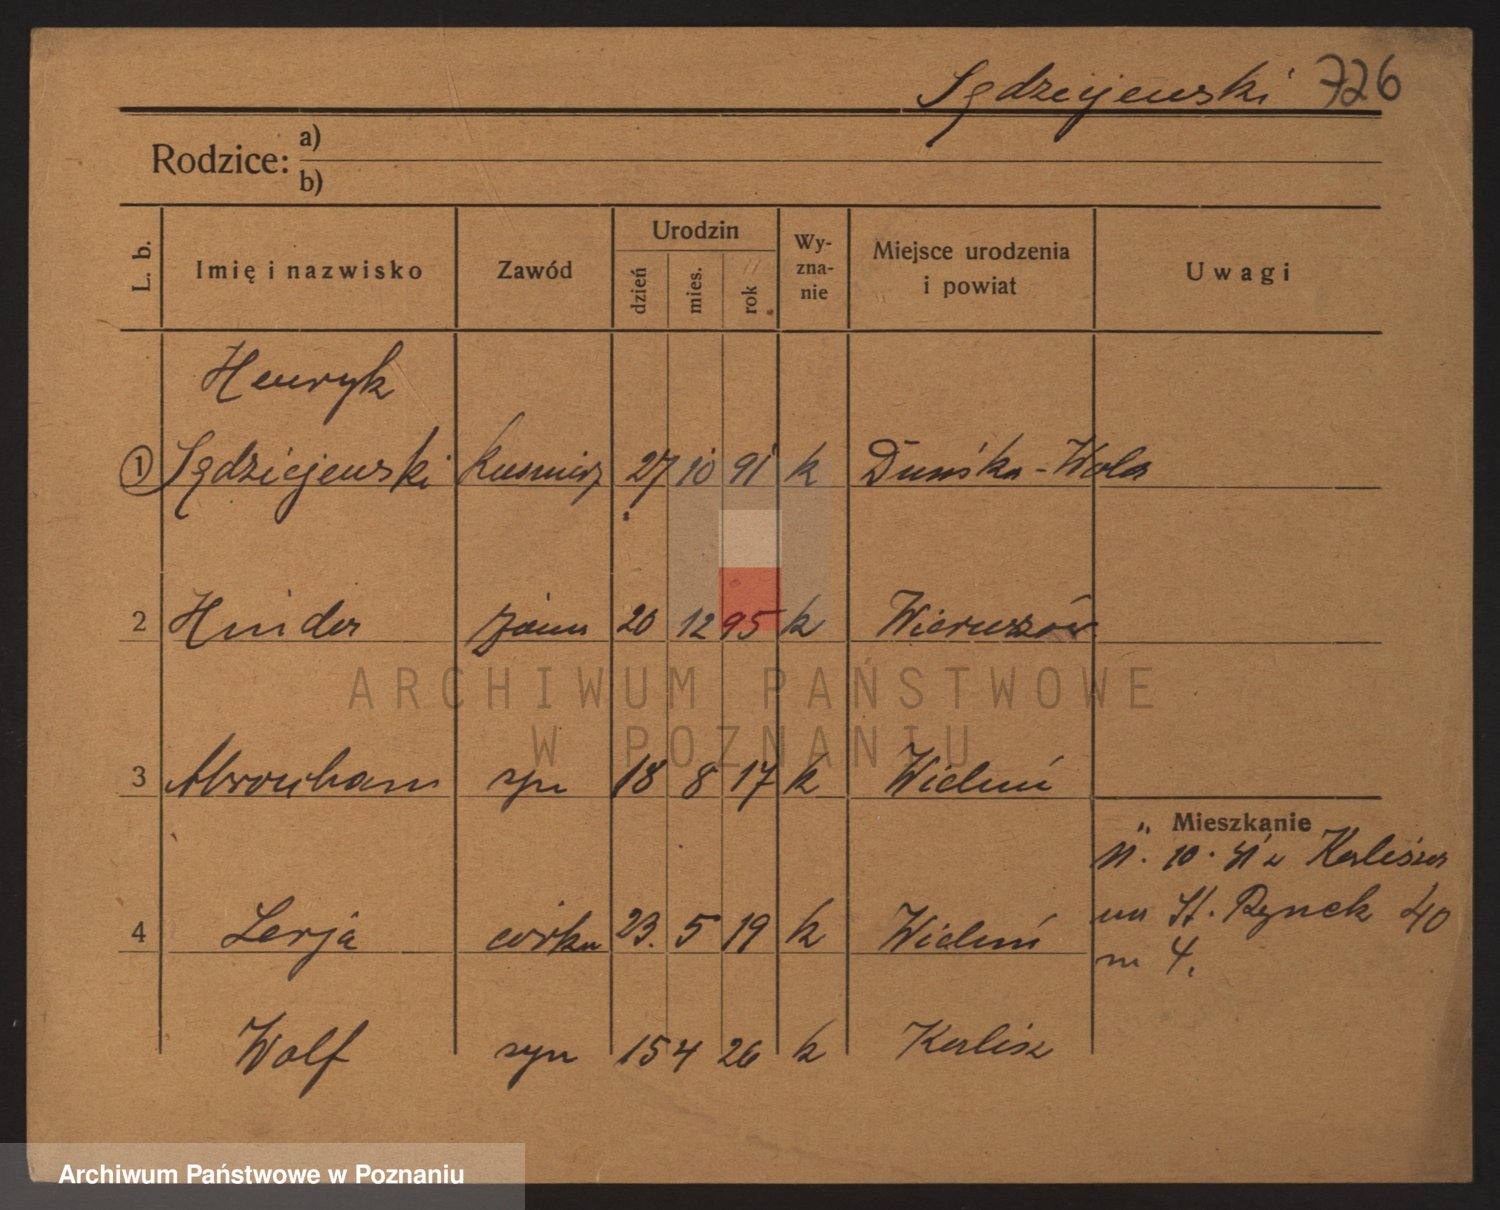 Sędziejewski 726
Rodzice: a)
b)
L. b. Imię i nazwisko Zawód Urodzin dzień mies. rok Wy-zna-nie Miejsce urodzenia i powiat Uwagi
Henryk
1 Sędziejewski kuśnierz 27 10 91 k Duńska-Wola
2 Hinda żona 20 12 95 k Wieruszów
3 Abraham syn 18 8 17 k Wieluń
Mieszkanie
10. w Kaliszu
4 córka 23. 5 19 k Wieluń
na St. Rynek 40
m 4.
Wolf syn 15 4 26 k Kalisz
ARCHIWUM PAŃSTWOWE
W POZNANIU
Archiwum Państwowe w Poznaniu